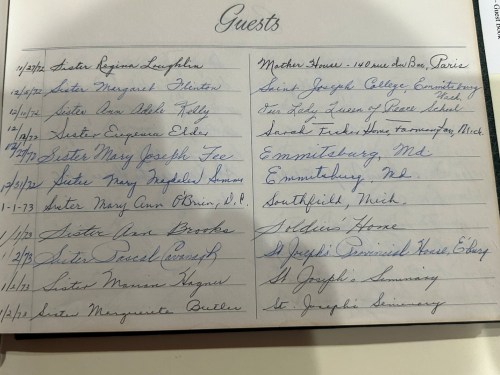 Guest Book
Guests
10/27/72 Sister Regina Loughlin Mother House - 140 rue du Bac, Paris
Sister Margaret Saint Joseph College Emmitsburg
12/10/72 Sister Ann Adele Kelly Our Lady Queen of Peace School
Sister Eugenia Elder Sarah Fisher Home, Farmington, Mich.
Sister Mary Joseph Fee Emmitsburg, Md
12/31/72 Sister Mary Magdalen Emmitsburg Md.
1-1-73 Sister Mary Ann O'Brien, D.C. Southfield, Mich.
1/1/73 Sister Ann Brooks Soldiers' Home
1/2/73 Sister Pascal Cavanagh St Joseph's Provincial House,
1/2/73 Sister Marian Hagner St Joseph's Seminary
1/2/73 Sister Marguerite Butler St. Joseph's Seminary